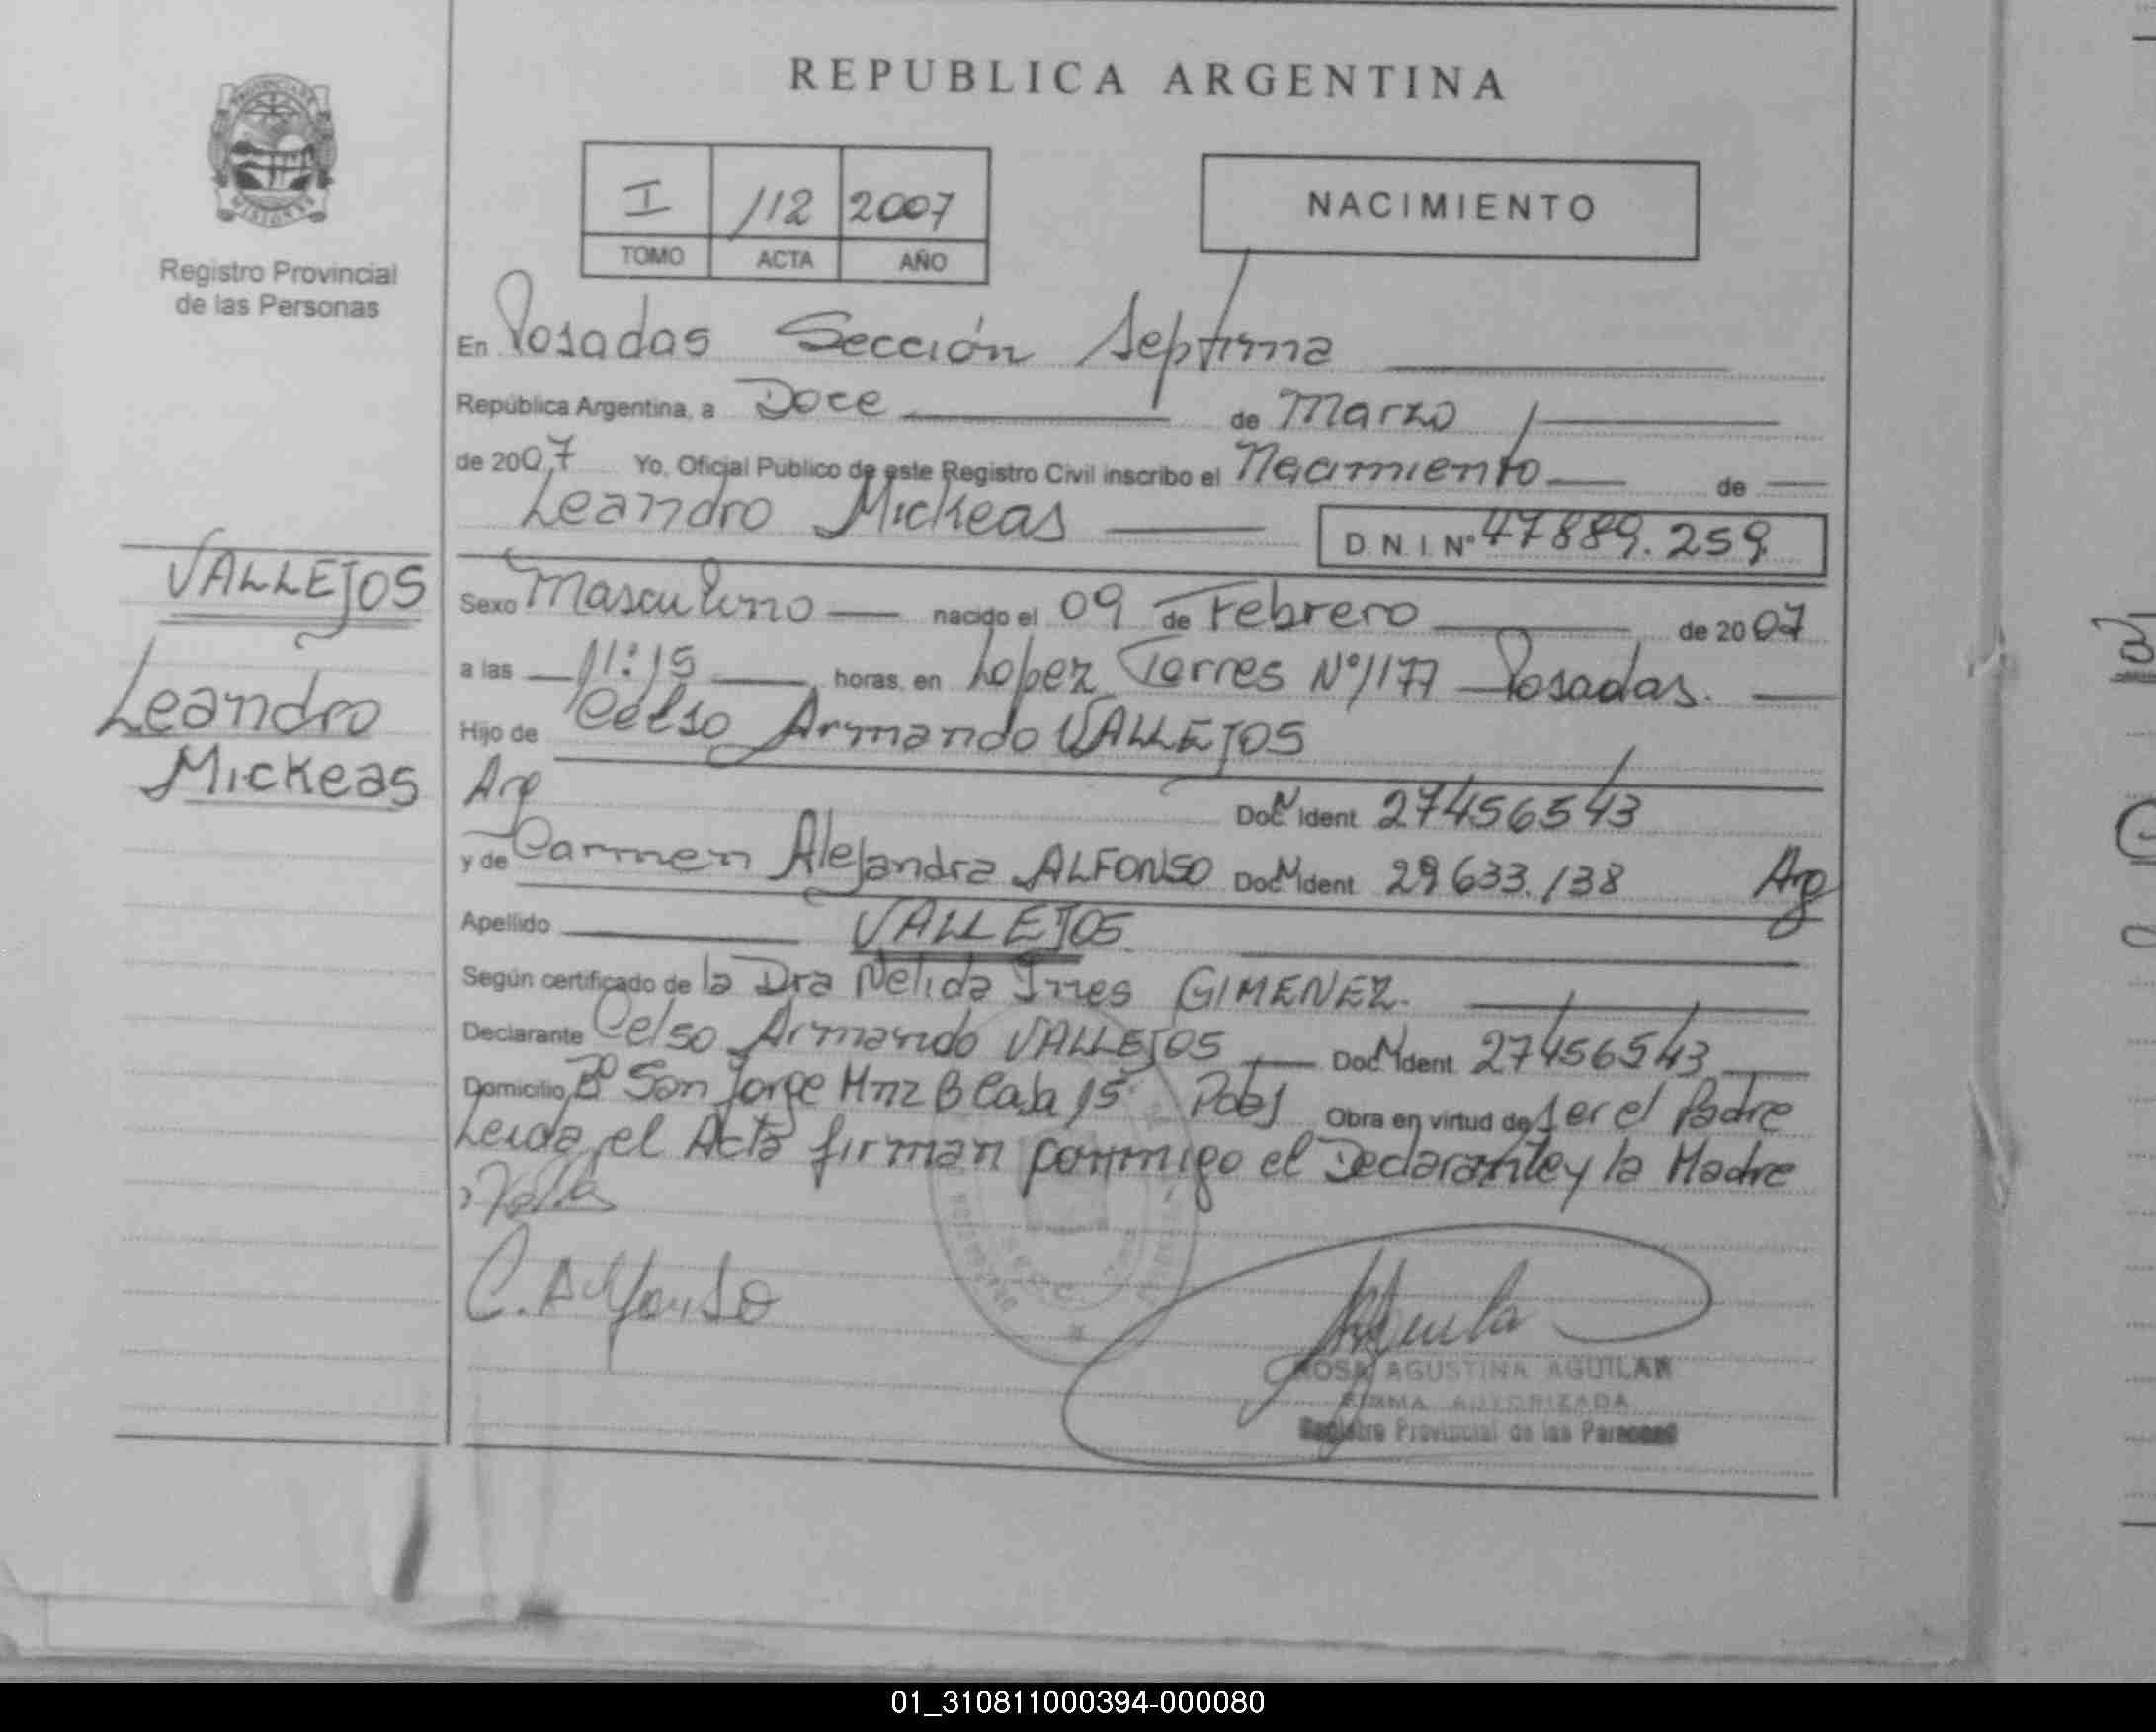 REPUBLICA ARGENTINA
I 112 2007
TOMO ACTA AÑO
NACIMIENTO
PROVINCIA DE
MISIONES
Registro Provincial
de las Personas
En Posadas Sección Septima
República Argentina, a Doce de Marzo
de 2007 Yo, Oficial Público de este Registro Civil inscribo el Nacimiento de
Leandro Mickeas D.N.I. Nº 47889.259
VALLEJOS
Leandro
Mickeas
Sexo Masculino nacido el 09 de Febrero de 2007
a las 11:15 horas, en Lopez Torres Nº 1177 Posadas.
Hijo de Celso Armando VALLEJOS
Arg Doc. Ident 27456543
y de Carmen Alejandra ALFONSO Doc. Ident 29633.138 Arg
Apellido VALLEJOS
Según certificado de la Dra Nelida Ines GIMENEZ.
Declarante Celso Armando VALLEJOS Doc. Ident 27456543
Domicilio Bº San Jorge Mnz B Casa 15 Pdas Obra en virtud de ser el Padre
Leida el Acta firman conmigo el Declarante y la Madre
C. Alfonso
ROSA AGUSTINA AGUILAR
FIRMA AUTORIZADA
Registro Provincial de las Personas
01_310811000394-000080